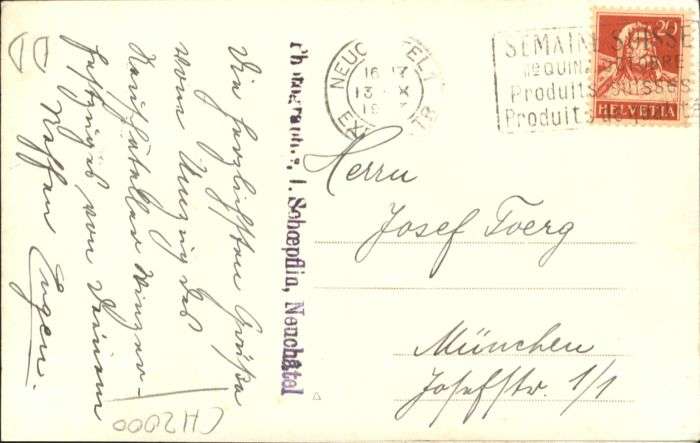 Die herzlichsten Grüße
vom Umzug des
Neuchâteller Winzer-
festzuges von Deinem
Neffen
Eugen.
Photographie, J. Schœpflin, Neuchâtel
NEUCHATEL 1
13 X
EXP. LETTR
SEMAINE SUISSE
Produits suisses
Produits
20
HELVETIA
Herrn
Josef Foerg
München
Josefstr. 1/1
CH2000